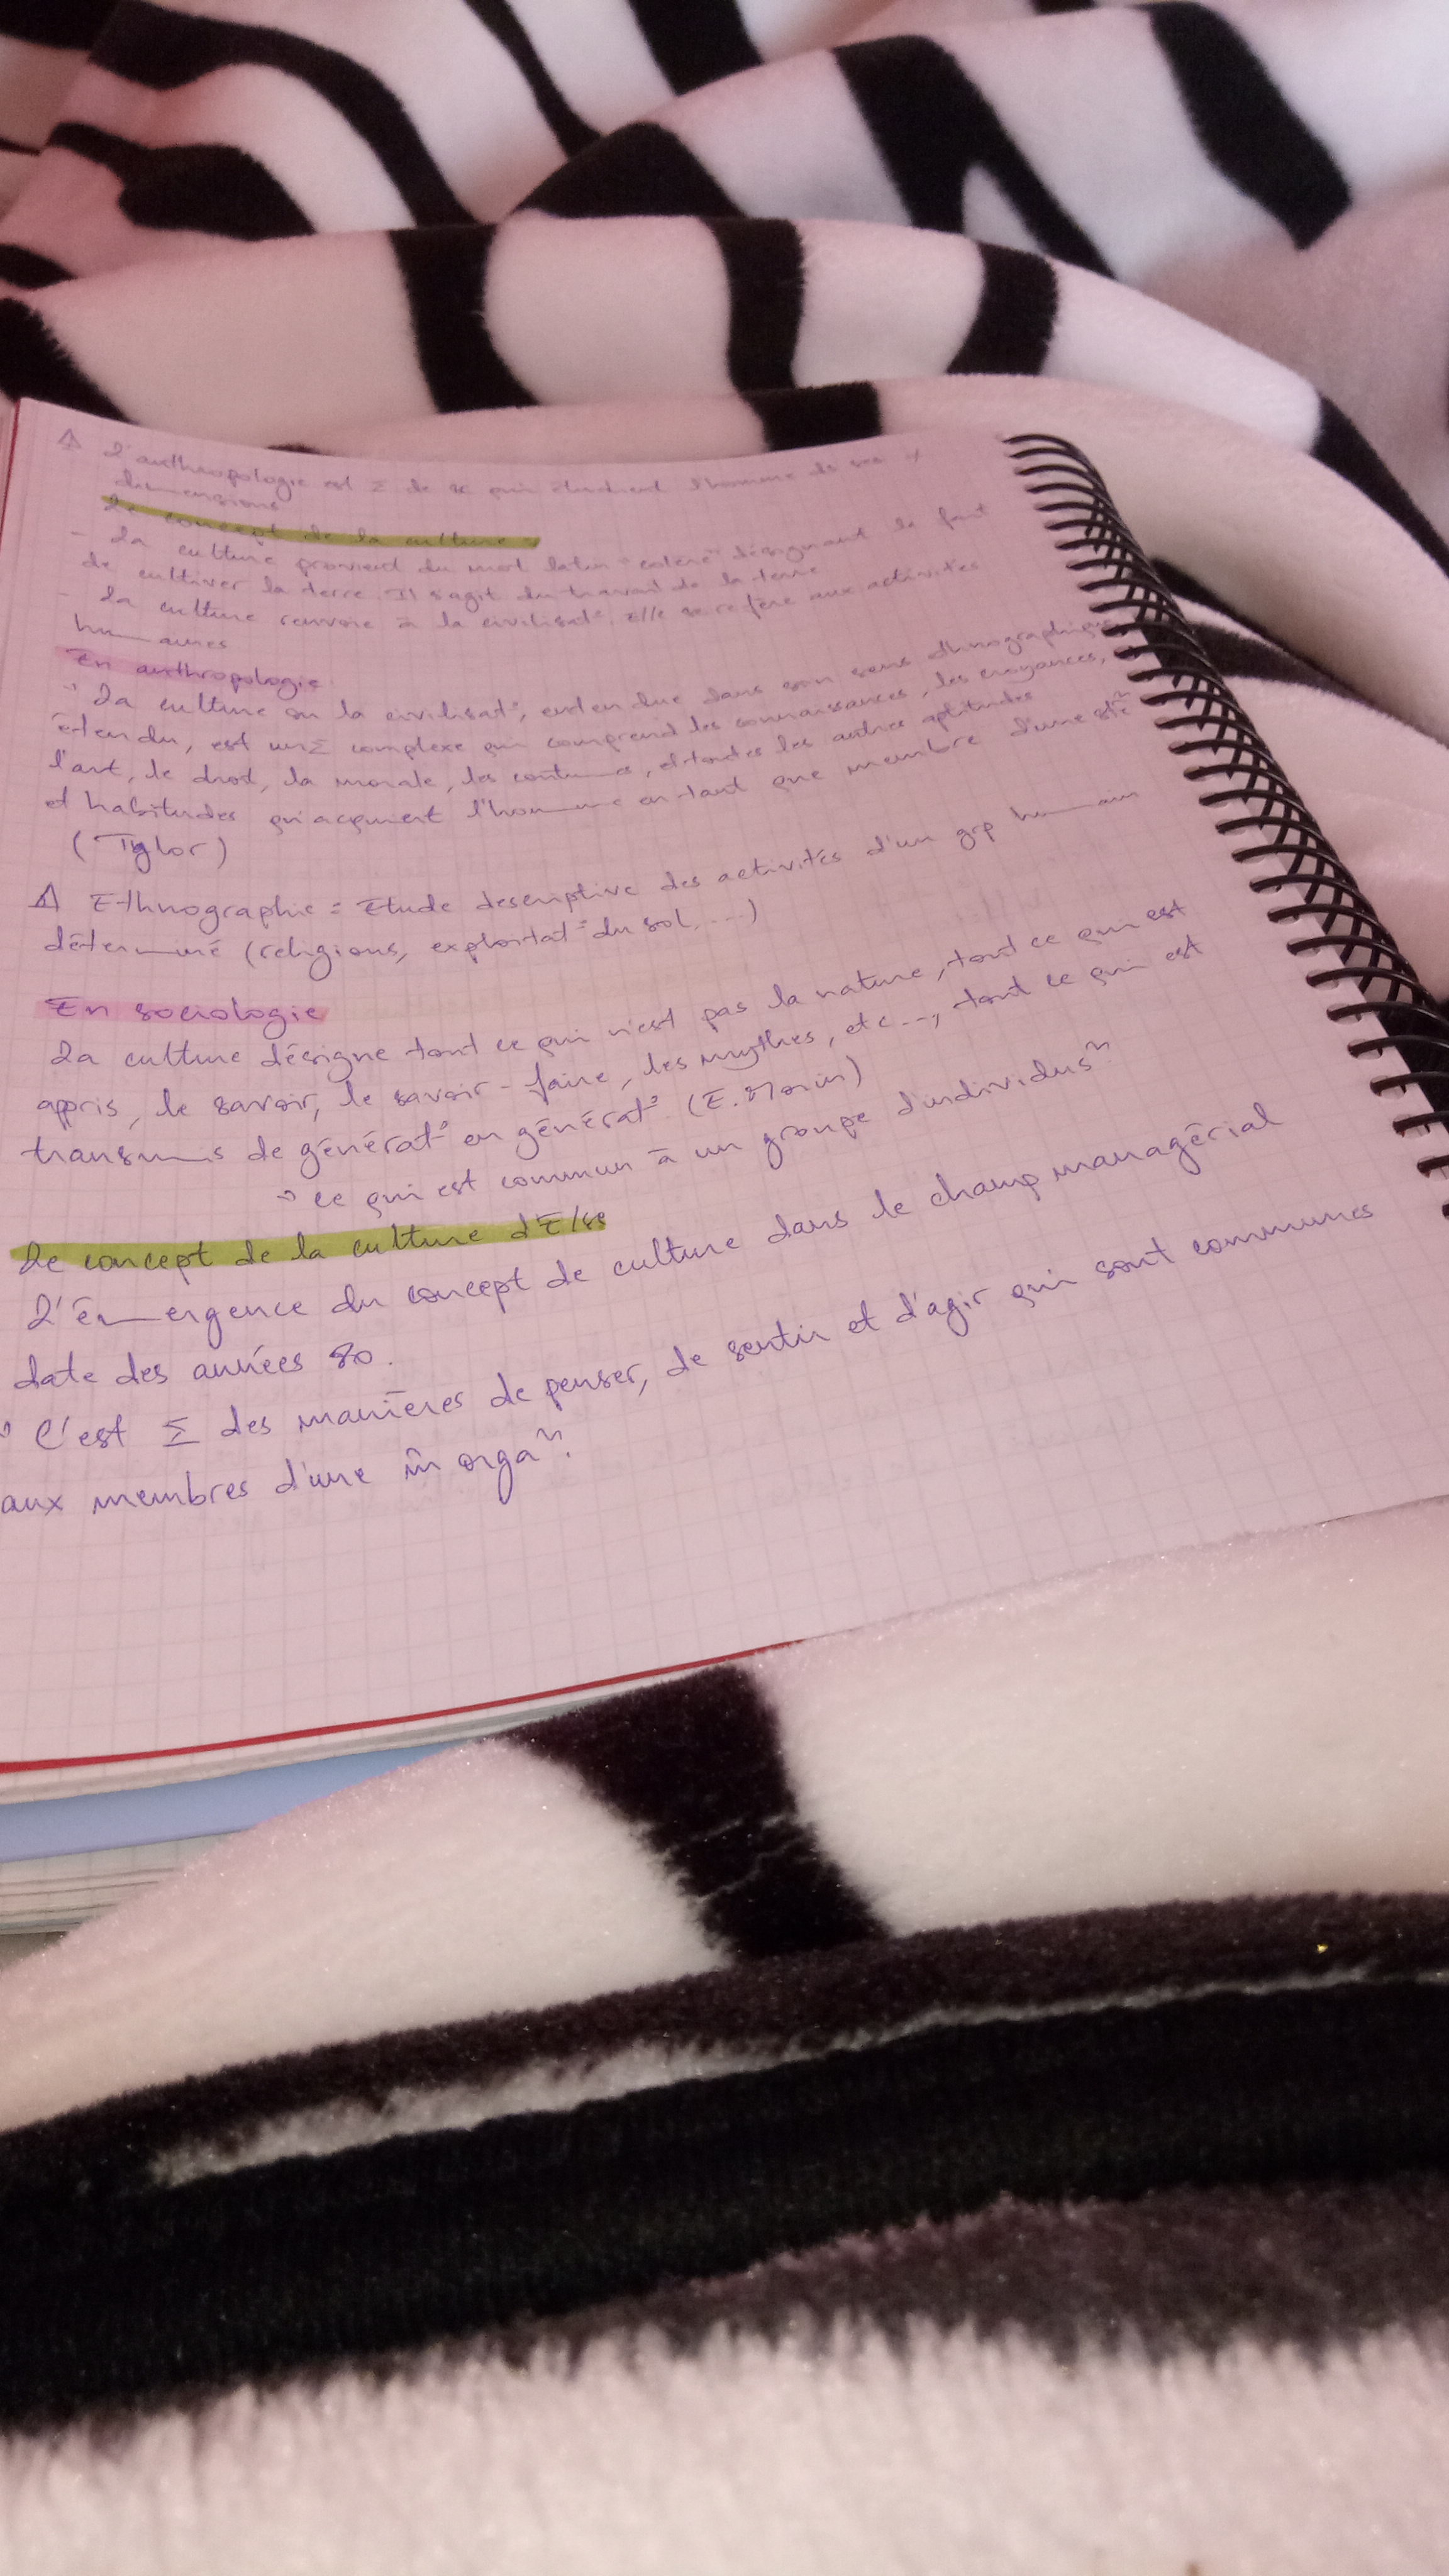 ⚠ L'anthropologie est Σ de sc qui étudient l'homme ds ses ≠
dimensions
Le concept de la culture :
- La culture provient du mot latin "colere" désignant le fait
de cultiver la terre. Il s'agit du travail de la terre
- La culture renvoie à la civilisat°. Elle se refère aux activités
humaines
En anthropologie
" La culture ou la civilisat°, entendue dans son sens ethnographique
étendu, est un Σ complexe qui comprend les connaissances, les croyances,
l'art, le droit, la morale, les coutumes, et toutes les autres aptitudes
et habitudes qu'acquiert l'homme en tant que membre d'une sté"
(Tylor)
⚠ Ethnographie = Etude descriptive des activités d'un grp humain
déterminé (religions, exploitat° du sol, ...)
En sociologie
La culture désigne tout ce qui n'est pas la nature, tout ce qui est
appris, le savoir, le savoir-faire, les mythes, etc..., tout ce qui est
transmis de générat° en générat° (E. Morin)
" Ce qui est commun à un groupe d'individus"
Le concept de la culture d'E/se
L'émergence du concept de culture dans le champ managérial
date des années 80.
" C'est Σ des manières de penser, de sentir et d'agir qui sont communes
aux membres d'une m̂ orga".